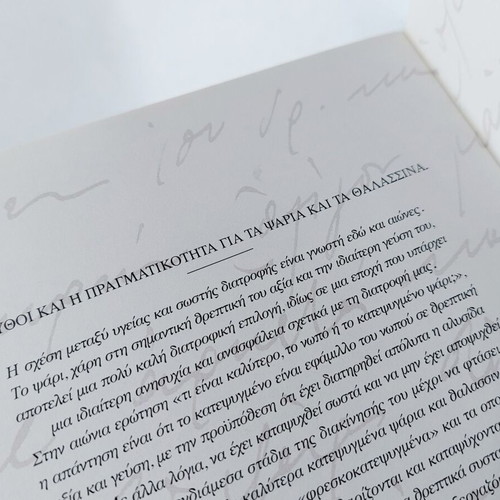 ΥΘΟΙ ΚΑΙ Η ΠΡΑΓΜΑΤΙΚΟΤΗΤΑ ΓΙΑ ΤΑ ΨΑΡΙΑ ΚΑΙ ΤΑ ΘΑΛΑΣΣΙΝΑ.
Η σχέση μεταξύ υγείας και σωστής διατροφής είναι γνωστή εδώ και αιώνες.
Το ψάρι, χάρη στη σημαντική θρεπτική του αξία και την ιδιαίτερη γεύση του,
αποτελεί μια πολύ καλή διατροφική επιλογή, ιδίως σε μια εποχή που υπάρχει
μια ιδιαίτερη ανησυχία και ανασφάλεια σχετικά με τη διατροφή μας.
Στην αιώνια ερώτηση «τι είναι καλύτερο, το νωπό ή το κατεψυγμένο ψάρι;»,
η απάντηση είναι ότι το κατεψυγμένο είναι εφάμιλλο του νωπού σε θρεπτική
αξία και γεύση, με την προϋπόθεση ότι έχει διατηρηθεί απόλυτα η αλυσίδα
ε άλλα λόγια, να έχει καταψυχθεί σωστά και να μην έχει αποψυχθεί
νδιάμεσα στάδια της διακίνησής του μέχρι να φτάσει
καλύτερα κατεψυγμένα ψάρια και θαλασσιν
ρεσκοκατεψυγμένα» και τα οπο
ρίζονται και καταψύχοντα
θρεπτικά συστα